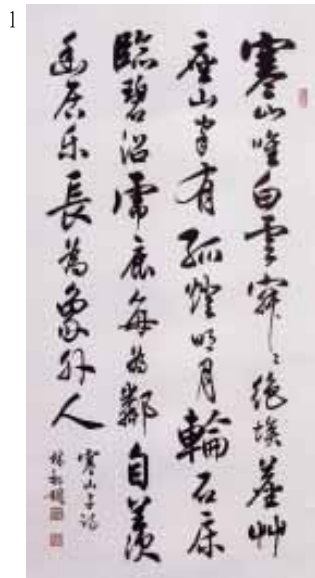 1
寒山唯白雲寂〻絕埃塵艸
座山家有孤燈明月輪石床
臨碧沼鹿每為鄰自羨
幽居樂長為象外人
寒山子詩